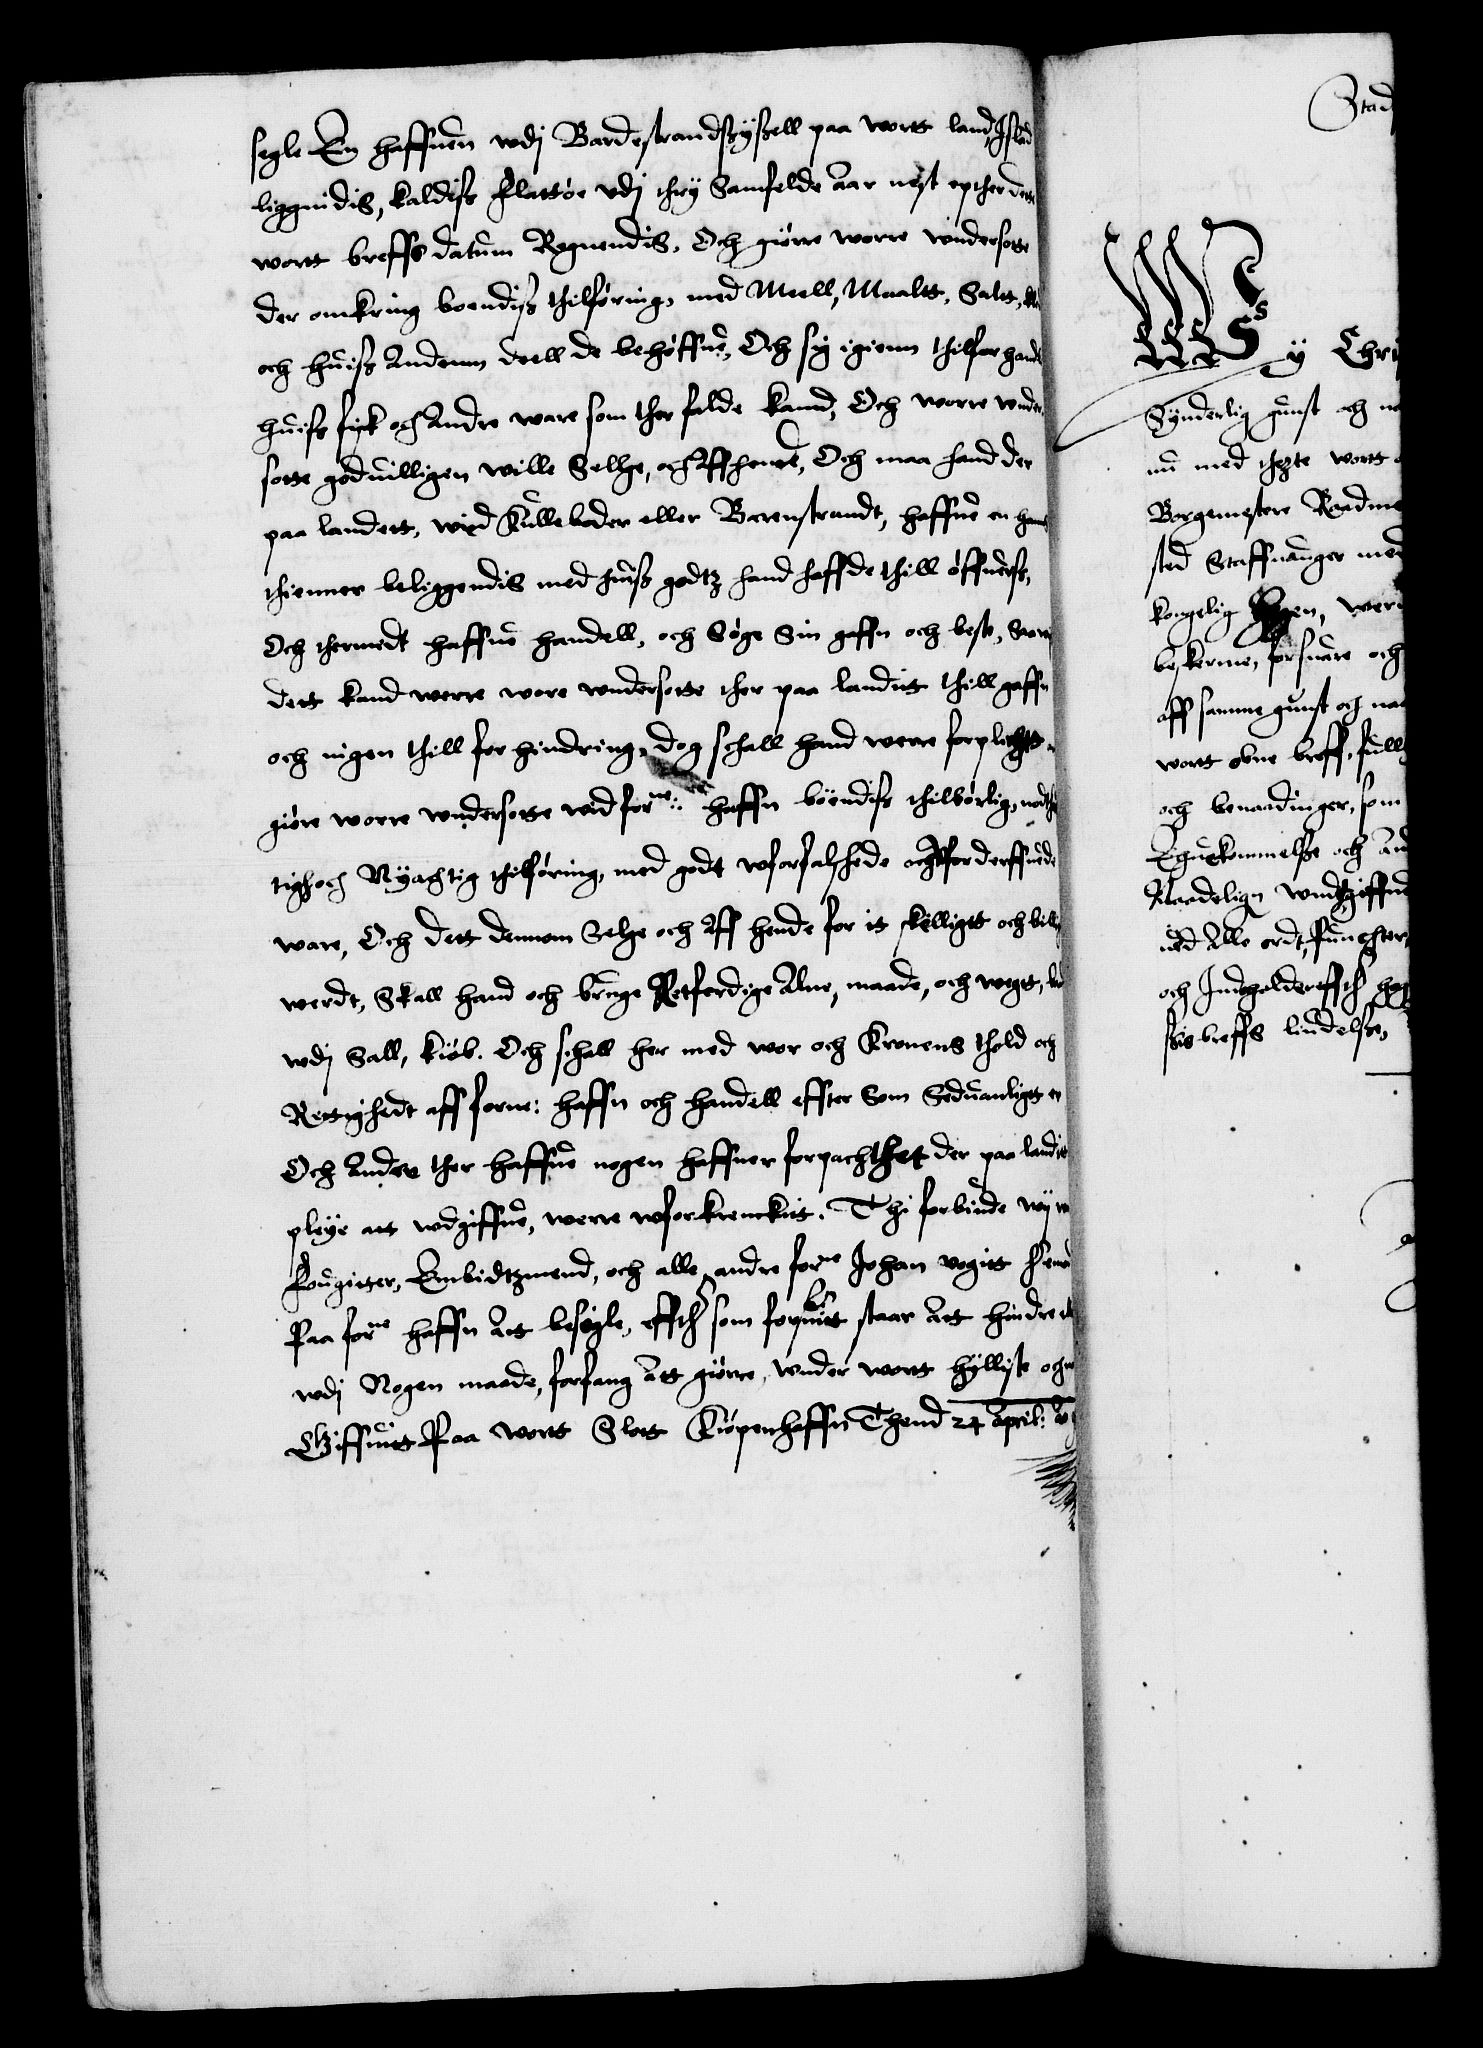 segle En haffuen wdj Bardestrandssyssell paa wortt land Jsland
liggendis, kaldiss Flattøe udj thry Samfelde Aar nest epther dette
wortt breffs datum Regnendis. Och giøre worre wndersotte
der omkring boendiss thilføring, med Meell, Maaltt, Saltt,
och huiss Andenn deell de behøffue, Och sig igienn thilforhandle
huiss fisk och Andre ware som ther falde kand, Och worre wnder
sotte goduilligen wille Selge, och Affhende, Och maa hand der
paa landett, wid Kulleboder eller Barenstrandt, haffue en hans
thienner beliggendis med huiss godtz hand haffde thill øffuerss,
Och thermedt haffue handell, och Søge Sin gaffn och beste, Saa
dett kand werre wore wndersotte ther paa landitt thill gaffn
och ingen thill forhindring, dog schall hand werre forplichtt
giøre worre wndersotte wid forne: haffn boendiss thilbørlig, nødt
tigh och Nyachtig thilføring, med godt wforfalskede och Wforderffuede
ware, Och dett dennom Selge och Aff hende for it skelligtt och billig
werdt, Skall hand och bruge Retferdige Alne, maade, och wegtt,
wdj Sall, kiøb. Och schall her med wor och Kronens thold och
Rettighedt aff forne: haffn och handell effter Som Seduanligtt er
Och Andre ther haffue nogen haffner forpachthet der paa landit
pleye att wdgiffue, werre wforkrenckitt. Thi forbinde wij
fougitter, Embidtzmend, och alle andre forne Johan vogitt
Paa forne haffn Att besegle, effther som forschreffuit staar Att hindre
wdj Nogen maade, forfang Att giørre, wnder wortt hylliste och
Giffuitt Paa wortt Slott Kiøpenhaffn Thend 24 April:
Stad
Wy Chri
Synderlig gunst och
nu med thette wortt
Borgemestere Raadme
sted Staffuanger med
kongelig
beskerme, forsuare och
aff samme gunst och naa
wortt obne breff, full
och benaadinger, som
Ihukommelsse och And
Naadeligen wndt giffuet
ued Alle ordt, Puncther
och Jndhold effther
ssis breffs liudelsse,